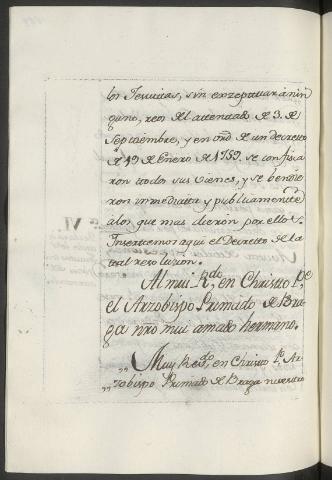 los Jesuitas, sin exzeptuar à nin
guno, reos del attentado de 3. de
Septiembre, y en ord.n de un decreto
de 19 de Enero de 1759. se confisca
ron todos sus vienes, y se bendie
ron inmediata y publicamente
a los que mas dieron por ellos.
Insertemos aqui el Decreto de la
tal resoluzion.
Al mui R.do en Christo P.e
el Arzobispo Primado de Bra
ga nro mui amado hermano.
„ Muy Rdo, en Christo P.e Ar
„ zobispo Primado de Braga nuestro